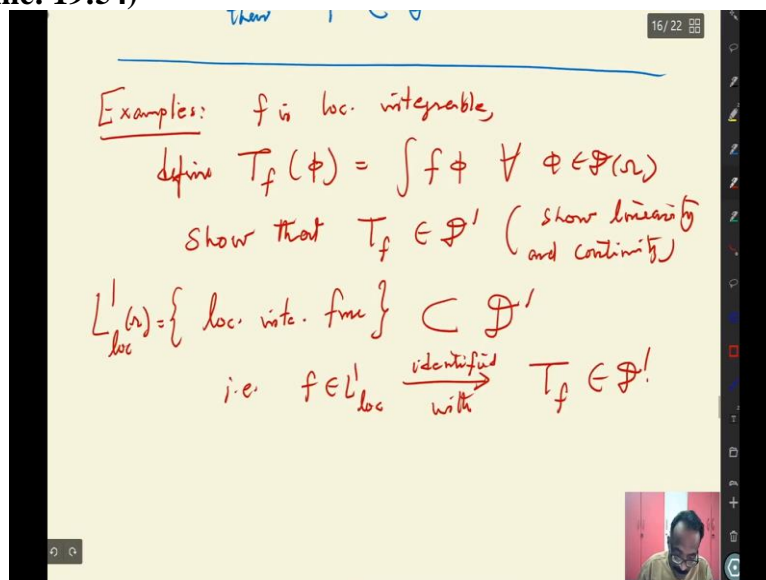 then T ⊂ D
16/22
Examples: f is loc. integrable,
define T_f (φ) = ∫ f φ ∀ φ ∈ D(Ω)
show that T_f ∈ D' ( show linearity
and continuity)
L¹_loc (Ω) = { loc. inte. func } ⊂ D'
i.e. f ∈ L¹_loc identified with → T_f ∈ D'.